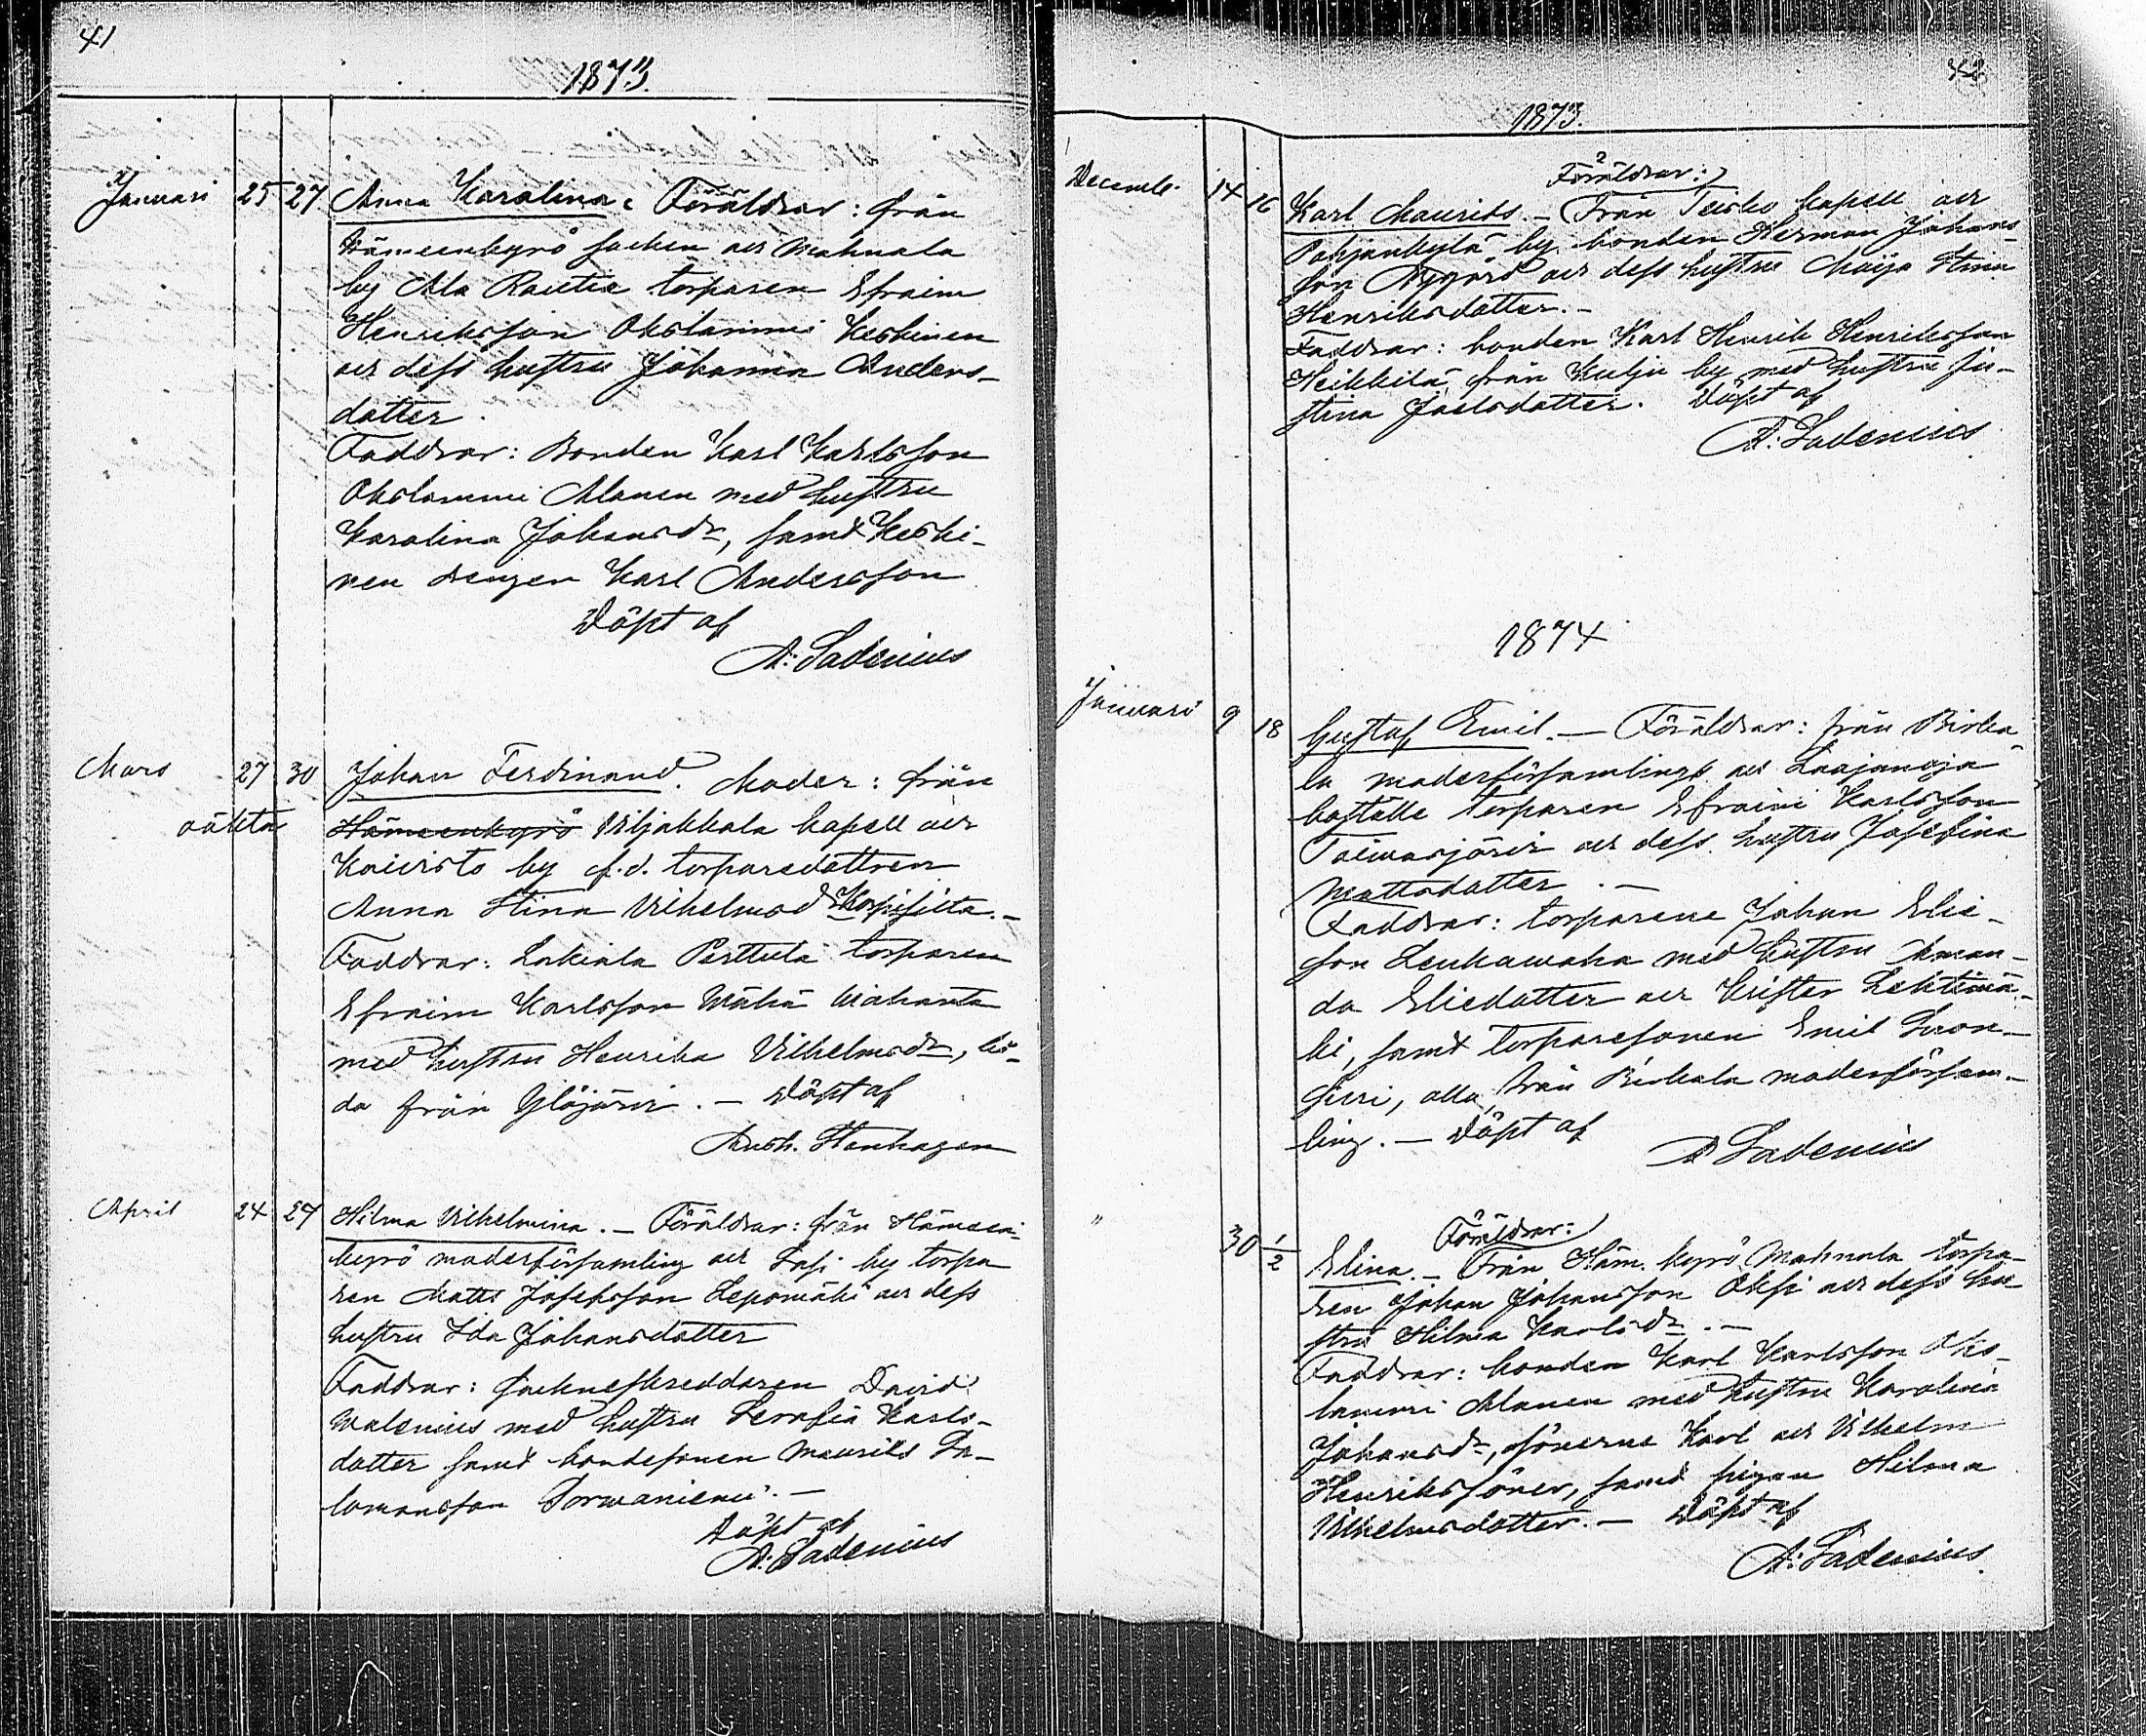 41
1873.
Januari 25 27 Anna Karolina. Föräldrar: från
Hämeenkyrö socken och Mahnala
by Ala Rautia torparen Efraim
Henriksson Okslammi Keskinen
och dess hustru Johanna Anders-
dotter.
Faddrar: Bonden Karl Karlsson
Okslammi Alanen med hustru
Karolina Johansdr, samt Keski-
nen drengen Karl Andersson
Döpt af
A: Ladenius
Mars 27 30 Johan Ferdinand. Moder: från
oäkta Hämeenkyrö Viljakkala kapell och
Koivisto by f.d. torparedottren
Anna Stina Vilhelmsd
Faddrar: Lakiala Perttula torparen
Efraim Karlsson Mähä
med hustru Henrika Vilhelmsdr, bå-
da från Ylöjärvi. — Döpt af
Stenhagen
April 24 27 Hilma Vilhelmina. — Föräldrar: från Hämeen-
kyrö moderförsamling och Sasi by torpa
ren Matts Josefsson Lepomäki och dess
hustru Ida Johansdotter
Faddrar: sockneskreddaren David
Walenius med hustru Serafia Karls-
dotter samt bondesonen Maurits Sa-
lomonsson
Döpt af
A: Ladenius
42
1873.
Föräldrar:
December 14 16 Karl Maurits. — Från Teisko kapell och
Pohjankylä by bonden Herman Johans-
son Nygård och dess hustru Maija Stina
Henriksdotter. —
Faddrar: bonden Karl Henrik Henriksson
Heikkilä från Kulju by med hustru Ju-
stina Joelsdotter. Döpt af
A: Ladenius
1874
Januari 9 18 Gustaf Emil. — Föräldrar: från Birka-
la moderförsamlings och Laajanoja
boställe torparen Efraim Karlsson
Taiwarjärvi och dess hustru Josefina
Mattsdotter. —
Faddrar: torparene Johan Elie-
son Leukawaha med hustru Aman-
da Eliedotter och Krister Lehtimä-
ki, samt torparesonen Emil Suon-
sivri, alla från Birkala moderförsam-
ling. — Döpt af
A Ladenius
Föräldrar:
" 30 1/2 Elina. — Från Häm. kyrö Mahnala torpa-
ren Johan Johansson Oksi och dess hu-
stru Hilma Karlsdr. —
Faddrar: bonden Karl Karlsson Oks-
lammi Alanen med hustru Karolina
Johansdr, sönerne Karl och Vilhelm
Henrikssöner, samt pigan Hilma
Vilhelmsdotter. — Döpt af
A: Ladenius.